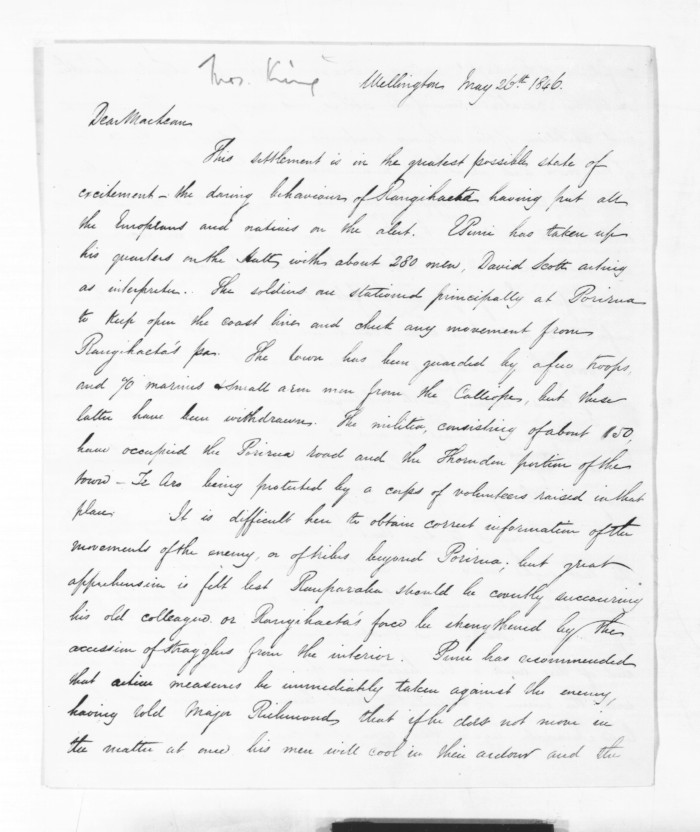 Thos. King
Wellington May 26th 1846.
Dear Maclean
This settlement is in the greatest possible state of
excitement – the daring behaviour of Rangihaeta having put all
the Europeans and natives on the alert. EPuni has taken up
his quarters on the Hutt, with about 280 men, David Scott acting
as interpreter. The soldiers are stationed principally at Porirua
to keep open the coast line and check any movement from
Rangihaeta's pa. The town has been guarded by a few troops,
and 70 marines & small arm men from the Calliope, but these
latter have been withdrawn. The militia, consisting of about 150,
have occupied the Porirua road and the Thorndon portion of the
town – Te Aro being protected by a corps of volunteers raised in that
place. It is difficult here to obtain correct information of the
movements of the enemy, or of tribes beyond Porirua; but great
apprehension is felt lest Rauparaha should be covertly succouring
his old colleague or Rangihaeta's force be strengthened by the
accession of stragglers from the interior. Puni has recommended
that active measures be immediately taken against the enemy,
having told Major Richmond that if he does not move in
the matter at once his men will cool in their ardour and the